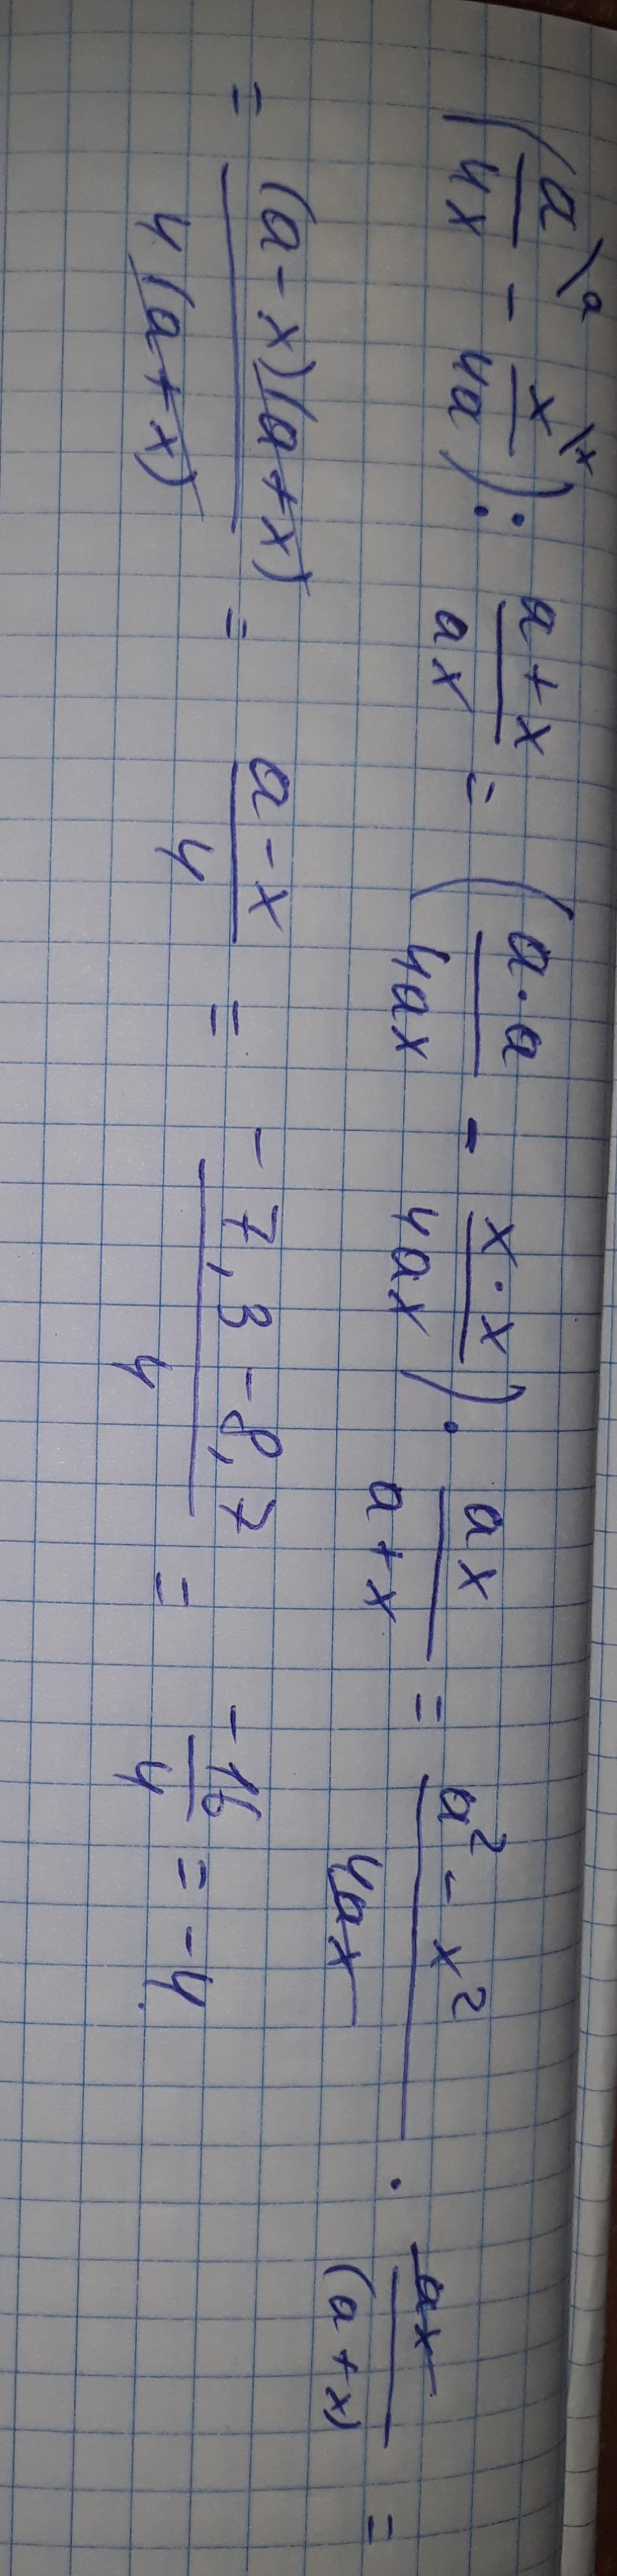 (a/4x \a - x/4a \x) : a+x/ax = (a·a/4ax - x·x/4ax) · ax/a+x = a²-x²/4ax · ax/(a+x) =
= (a-x)(a+x)/4(a+x) = a-x/4 = -7,3-8,7/4 = -16/4 = -4.